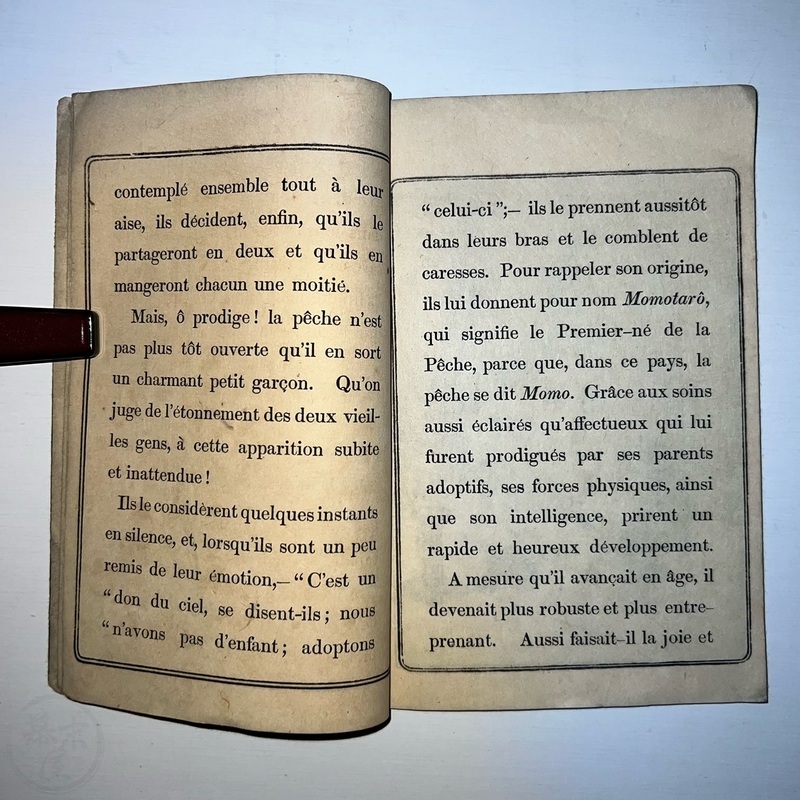 contemplé ensemble tout à leur
aise, ils décident, enfin, qu'ils le
partageront en deux et qu'ils en
mangeront chacun une moitié.
Mais, ô prodige ! la pêche n'est
pas plus tôt ouverte qu'il en sort
un charmant petit garçon. Qu'on
juge de l'étonnement des deux vieil-
les gens, à cette apparition subite
et inattendue !
Ils le considèrent quelques instants
en silence, et, lorsqu'ils sont un peu
remis de leur émotion,— “ C'est un
“ don du ciel, se disent-ils ; nous
“ n'avons pas d'enfant ; adoptons
“ celui-ci ”;— ils le prennent aussitôt
dans leurs bras et le comblent de
caresses. Pour rappeler son origine,
ils lui donnent pour nom Momotarô,
qui signifie le Premier-né de la
Pêche, parce que, dans ce pays, la
pêche se dit Momo. Grâce aux soins
aussi éclairés qu'affectueux qui lui
furent prodigués par ses parents
adoptifs, ses forces physiques, ainsi
que son intelligence, prirent un
rapide et heureux développement.
A mesure qu'il avançait en âge, il
devenait plus robuste et plus entre-
prenant. Aussi faisait-il la joie et